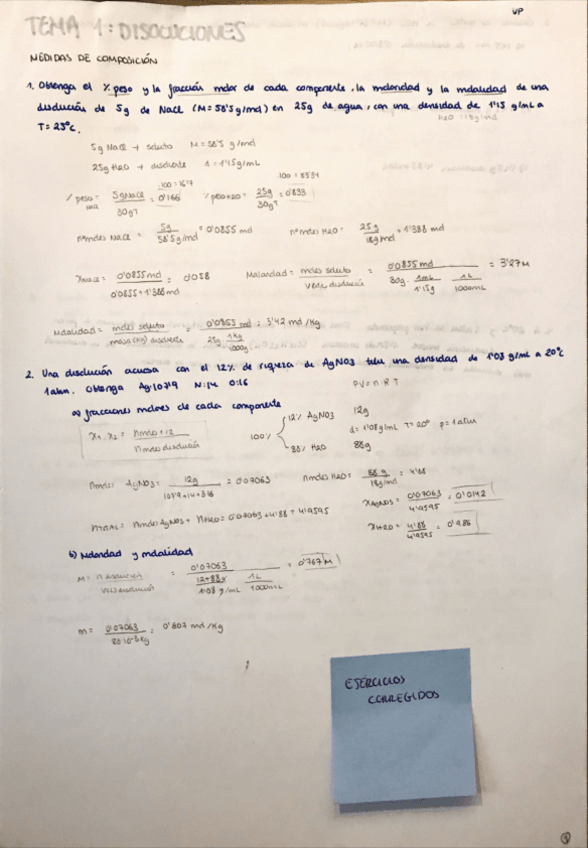 UP
TEMA 1: DISOLUCIONES
MEDIDAS DE COMPOSICIÓN
1. Obtenga el % peso y la fracción molar de cada componente, la molaridad y la molalidad de una
disolución de 5g de NaCl (M=58'5 g/mol) en 25g de agua, con una densidad de 1'15 g/mL a
T=25°C.
H2O = 18g/mol
5g NaCl → soluto M=58'5 g/mol
25g H2O → disolvente d=1'15g/mL
% peso NaCl = 5g NaCl / 30g = 0'166 · 100 = 16'7
% peso H2O = 25g / 30g = 0'833
nºmoles NaCl = 5g / 58'5g/mol = 0'0855 mol
nºmoles H2O = 25g / 18g/mol = 1'388 mol
XNaCl = 0'0855mol / 0'0855+1'388mol = 0'058
Molaridad = moles soluto / V(L) disolución = 0'0855 mol / 30g · 1mL / 1'15g · 1L / 1000mL = 3'27M
Molalidad = moles soluto / masa(kg) disolvente = 0'0855 mol / 25g · 1kg / 1000g = 3'42 mol/kg
2. Una disolución acuosa con el 12% de riqueza de AgNO3 tiene una densidad de 1'08 g/mL a 20°C
1atm. Obtenga Ag:107'9 N:14 O:16
PV=nRT
a) fracciones molares de cada componente
X1, X2 =
n moles disolución
100% 12% AgNO3 12g
d=1'08g/mL T=20° p=1atm
88% H2O 88g
nmoles AgNO3 = 12g / 107'9+14+3·16 = 0'07063
nmoles H2O = 88g / 18g/mol = 4'88
nTOTAL = nmoles AgNO3 + nH2O = 0'07063+4'88 = 4'9595
XAgNO3 = 0'07063 / 4'9595 = 0'0142
XH2O = 4'88 / 4'9595 = 0'986
b) Molaridad y molalidad
M = = 0'07063 / 12+88g / 1'08 g/mL · 1L / 1000mL = 0'767M
m = 0'07063 / 88·10-3kg = 0'807 mol/kg
EJERCICIOS
CORREGIDOS
1